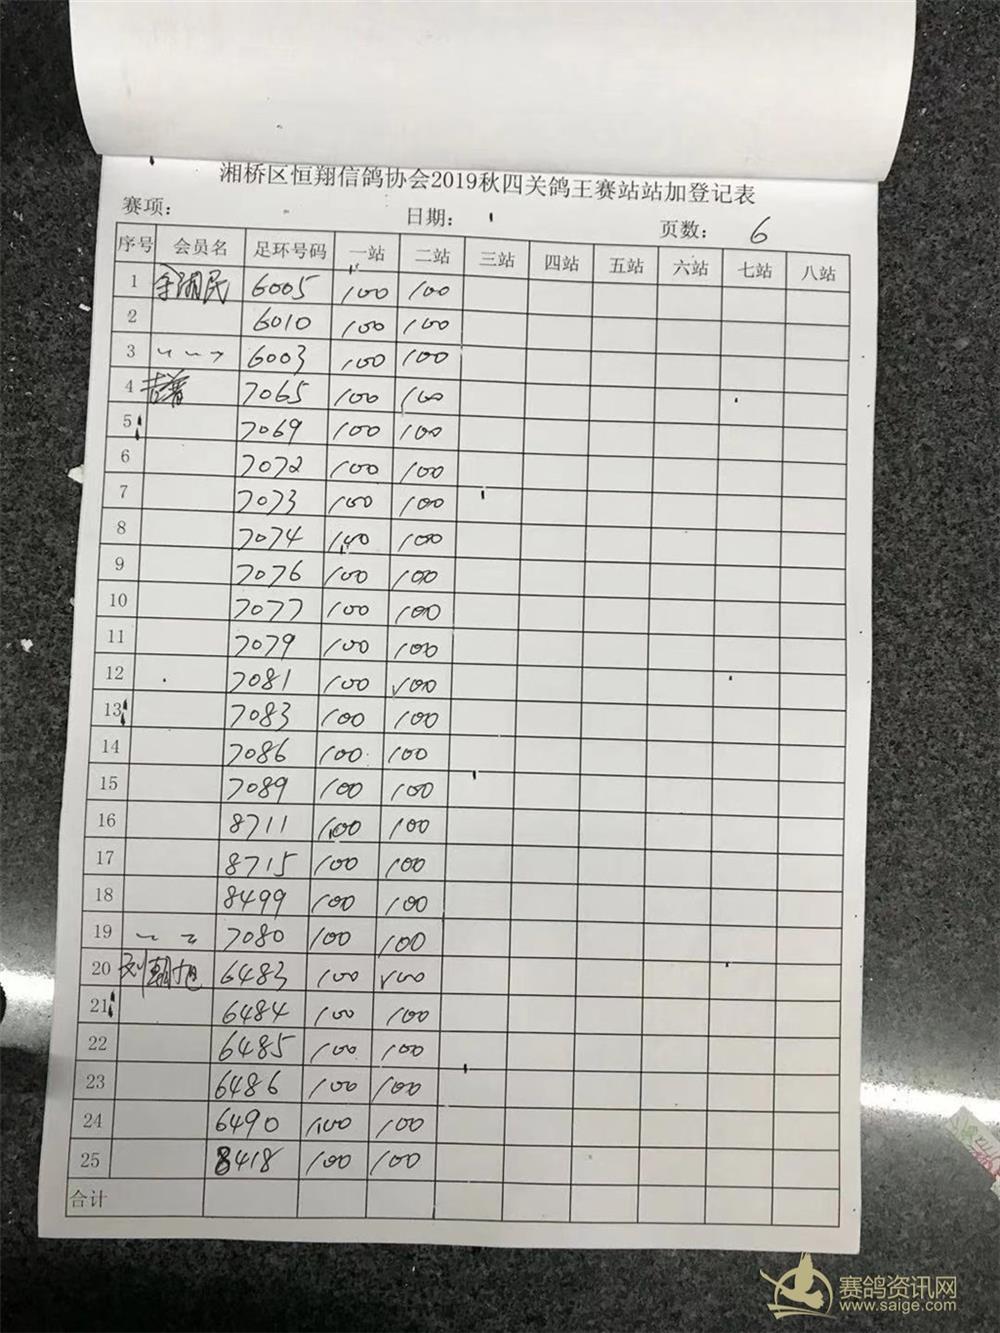 湘桥区恒翔信鸽协会2019秋四关鸽王赛站站加登记表
赛项： 日期： 页数： 6
序号 会员名 足环号码 一站 二站 三站 四站 五站 六站 七站 八站
1 余湘民 6005 100 100
2 6010 100 100
3 6003 100 100
4 7065 100 100
5 7069 100 100
6 7072 100 100
7 7073 100 100
8 7074 100 100
9 7076 100 100
10 7077 100 100
11 7079 100 100
12 7081 100 100
13 7083 100 100
14 7086 100 100
15 7089 100 100
16 8711 100 100
17 8715 100 100
18 8499 100 100
19 7080 100 100
20 刘朝旭 6483 100 100
21 6484 100 100
22 6485 100 100
23 6486 100 100
24 6490 100 100
25 8418 100 100
合计
赛鸽资讯网
www.saige.com